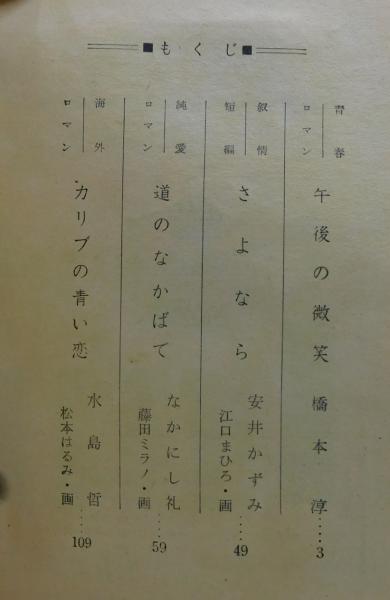 ■もくじ■
青春ロマン
午後の微笑
橋本淳‥‥3
叙情短編
さよなら
安井かずみ
江口まひろ・画‥‥49
純愛ロマン
道のなかばで
なかにし礼
藤田ミラノ・画‥‥59
海外ロマン
カリブの青い恋
水島哲
松本はるみ・画‥‥109